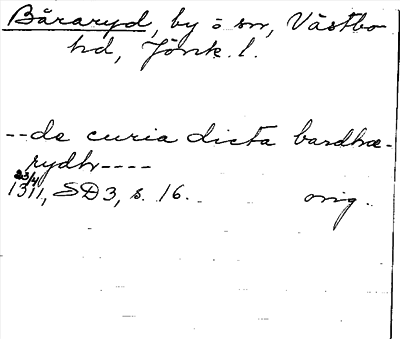 Båraryd, by o sn, Västbo
hd, Jönk. l.
-- de curia dicta bardhæ-
rydh ----
23/4
1311, SD 3, s. 16. orig.